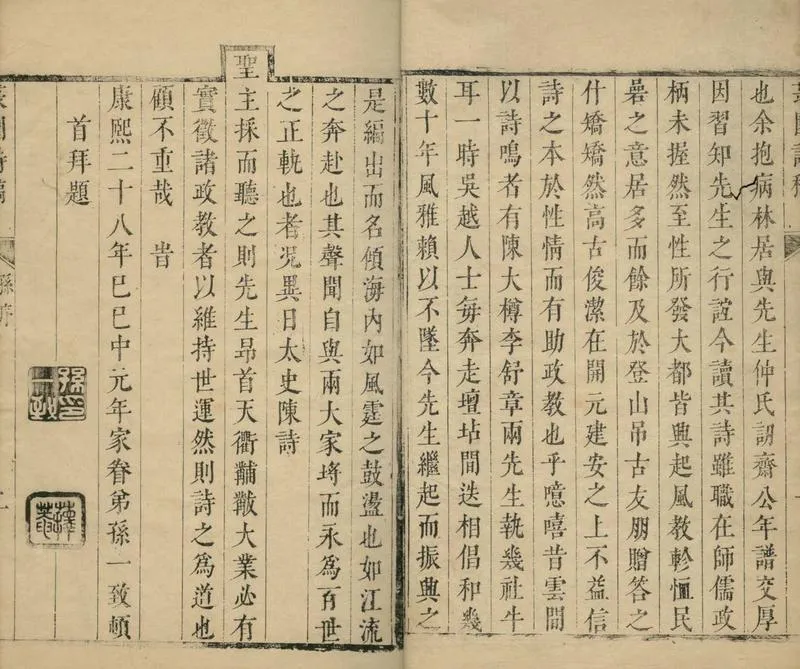 也余抱病林居與先生仲氏訒齋公年譜交厚
因習知先生之行誼今讀其詩雖職在師儒政
柄未握然至性所發大都皆興起風教軫恤民
之意居多而餘及於登山吊古友朋贈答之
什矯矯然高古俊潔在開元建安之上不益信
詩之本於性情而有助政教也乎噫嘻昔雲間
以詩鳴者有陳大樽李舒章兩先生執幾社牛
耳一時吳越人士每奔走壇坫間迭相倡和幾
數十年風雅賴以不墜今先生繼起而振興之
是編出而名傾海內如風霆之鼓盪也如江流
之奔赴也其聲聞自與兩大家埒而永為百世
之正軌也者况異日太史陳詩
聖主採而聽之則先生昂首天衢黼黻大業必有
實徵諸政教者以維持世運然則詩之為道也
顧不重哉 旹
康熙二十八年巳巳中元年家眷弟孫一致頓
首拜題
孫序
二